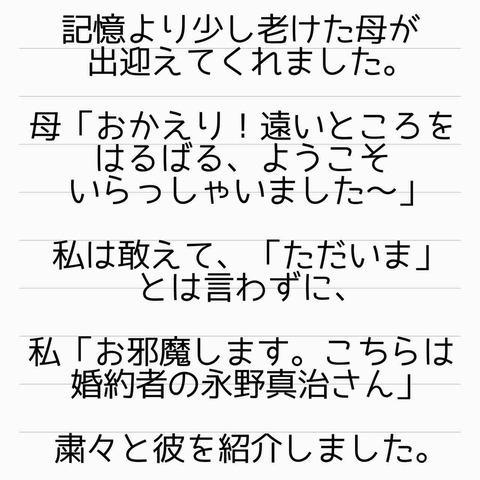 記憶より少し老けた母が
出迎えてくれました。
母「おかえり！遠いところを
はるばる、ようこそ
いらっしゃいました〜」
私は敢えて、「ただいま」
とは言わずに、
私「お邪魔します。こちらは
婚約者の永野真治さん」
粛々と彼を紹介しました。